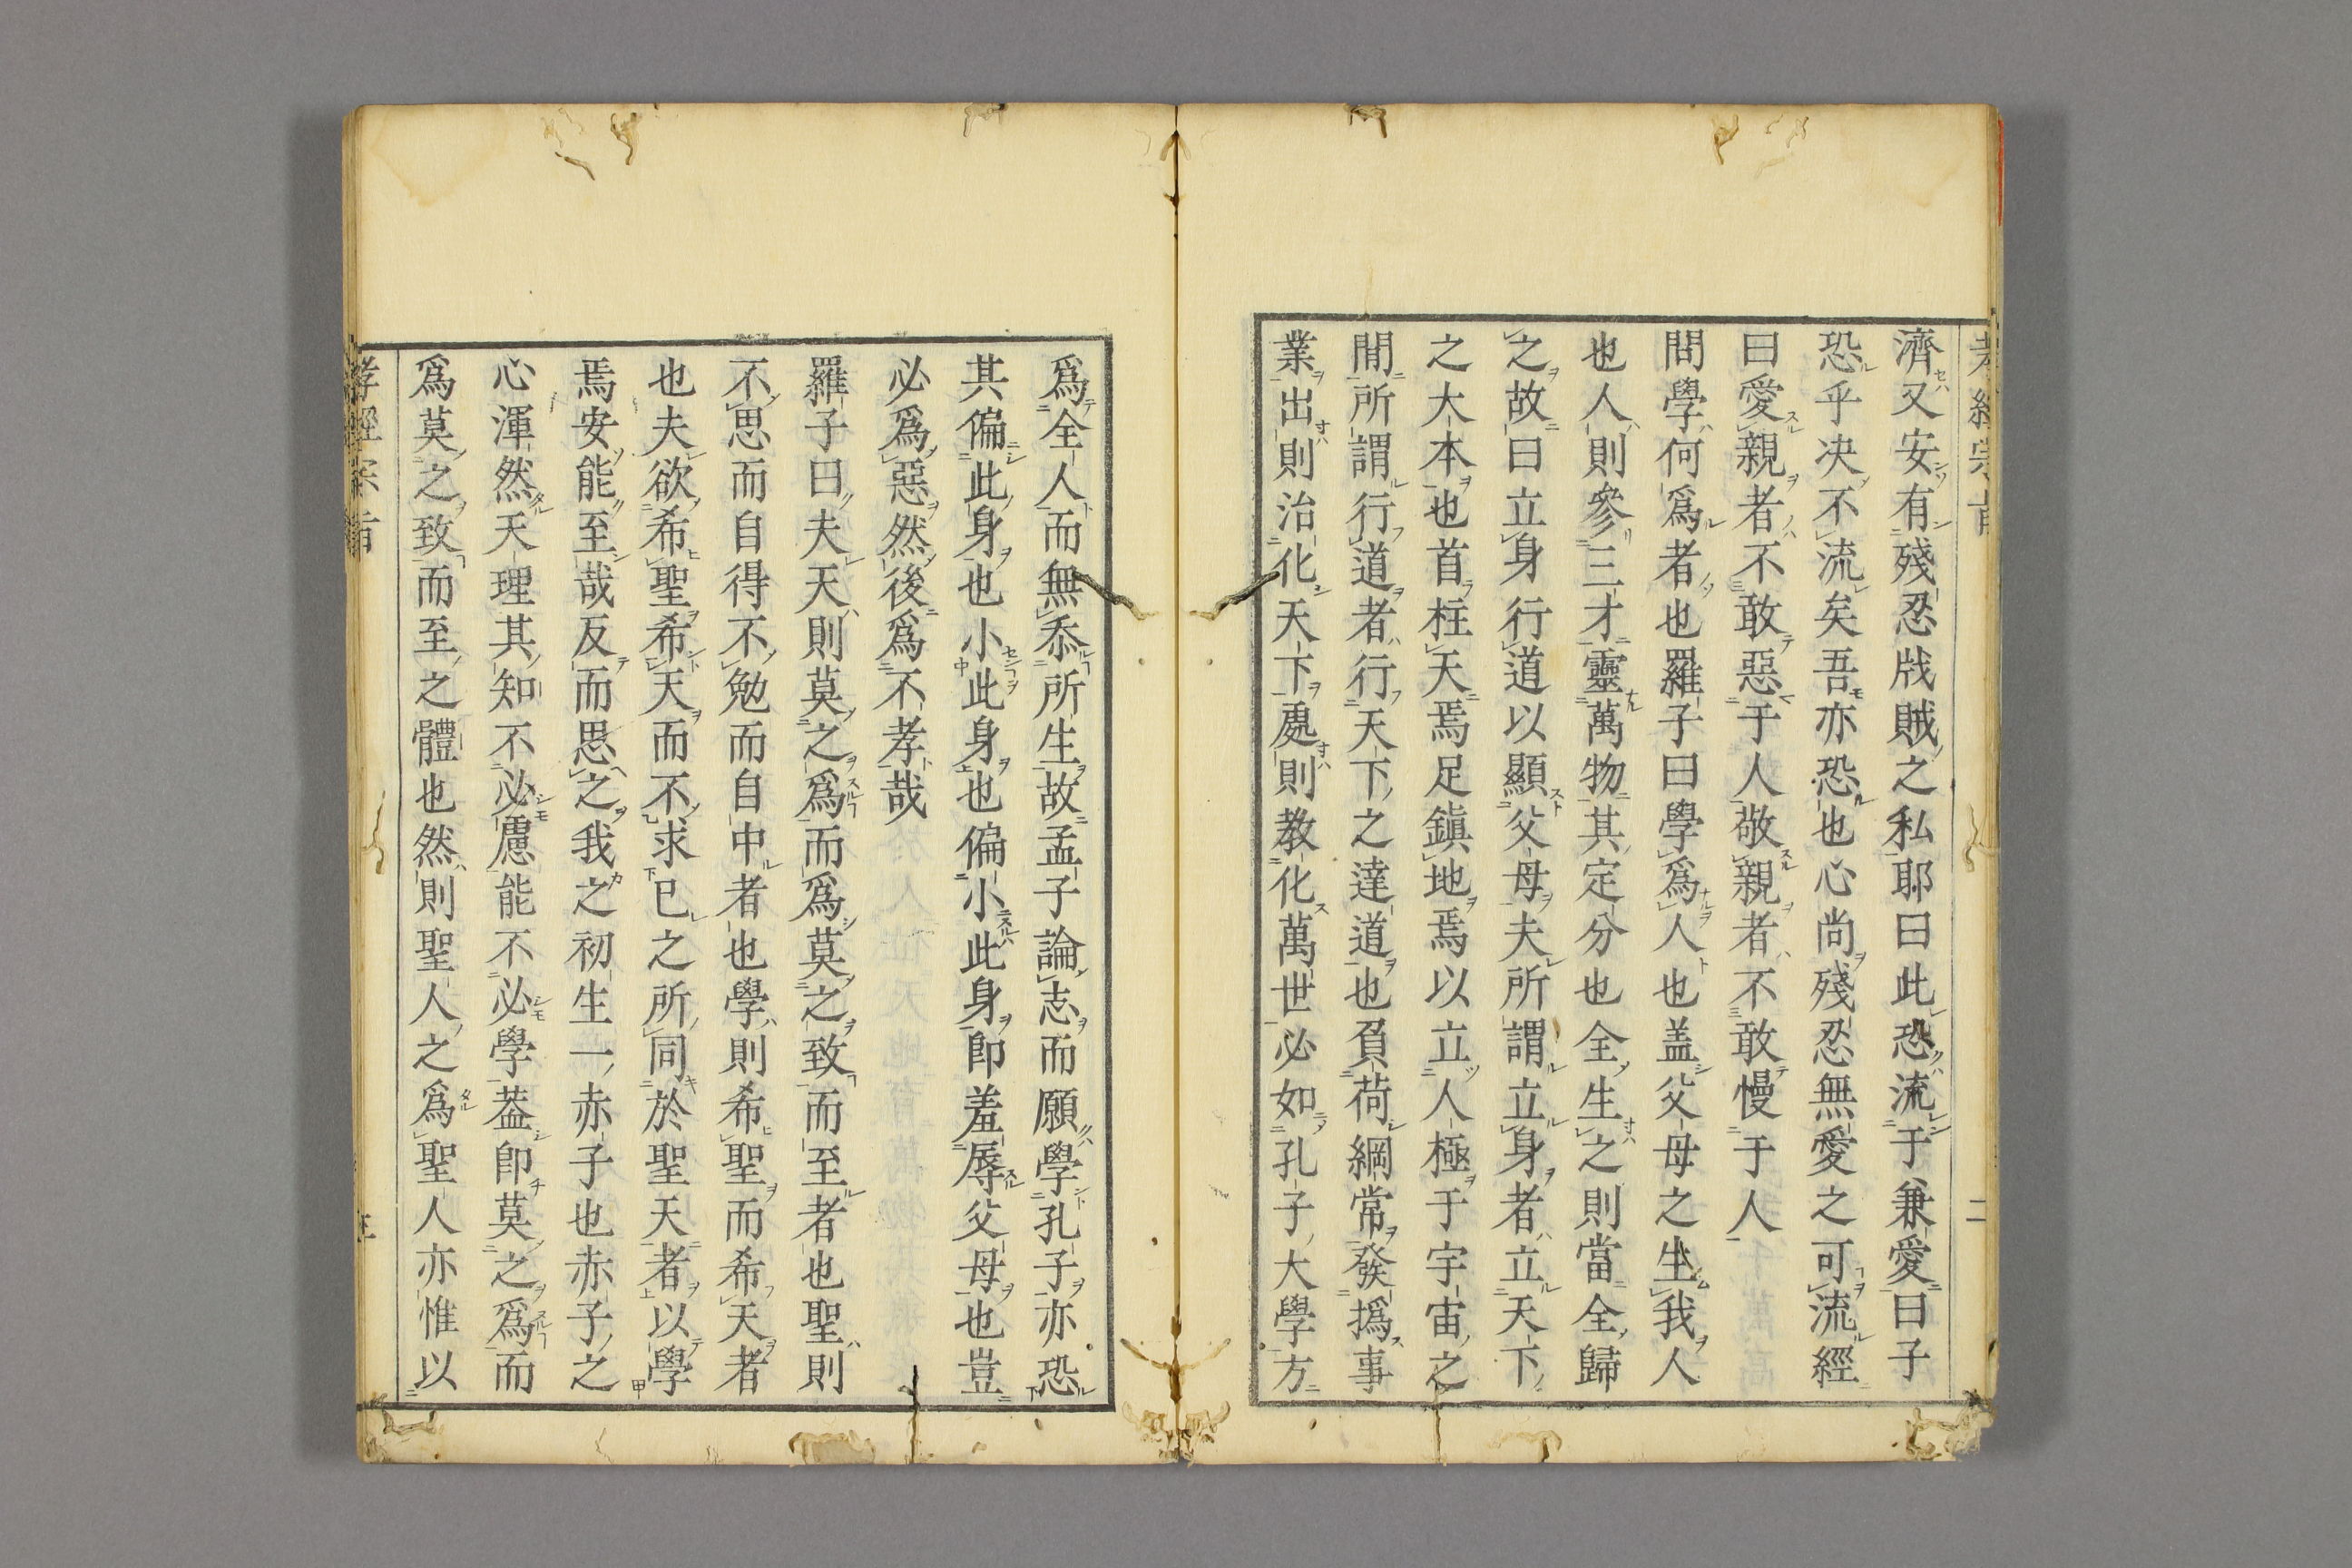 濟又安有殘忍戕賊之私耶曰此恐流于兼愛曰子
恐乎决不流矣吾亦恐也心尚殘忍無愛之可流經
曰愛親者不敢惡于人敬親者不敢慢于人
問學何爲者也羅子曰學爲人也盖父母之生我人
也人則參三才靈萬物其定分也全生之則當全歸
之故曰立身行道以顯父母夫所謂立身者立天下
之大本也首柱天焉足鎮地焉以立人極于宇宙之
間所謂行道者行天下之達道也負荷綱常發撝事
業出則治化天下處則教化萬世必如孔子大學方
爲全人而無忝所生故孟子論志而願學孔子亦恐
其偏此身也小此身也偏小此身即羞辱父母也豈
必爲惡然後爲不孝哉
羅子曰夫天則莫之爲而爲莫之致而至者也聖則
不思而自得不勉而自中者也學則希聖而希天者
也夫欲希聖希天而不求已之所同於聖天者以學
焉安能至哉反而思之我之初生一赤子也赤子之
心渾然天理其知不必慮能不必學葢即莫之爲而
爲莫之致而至之體也然則聖人之爲聖人亦惟以
孝經宗旨